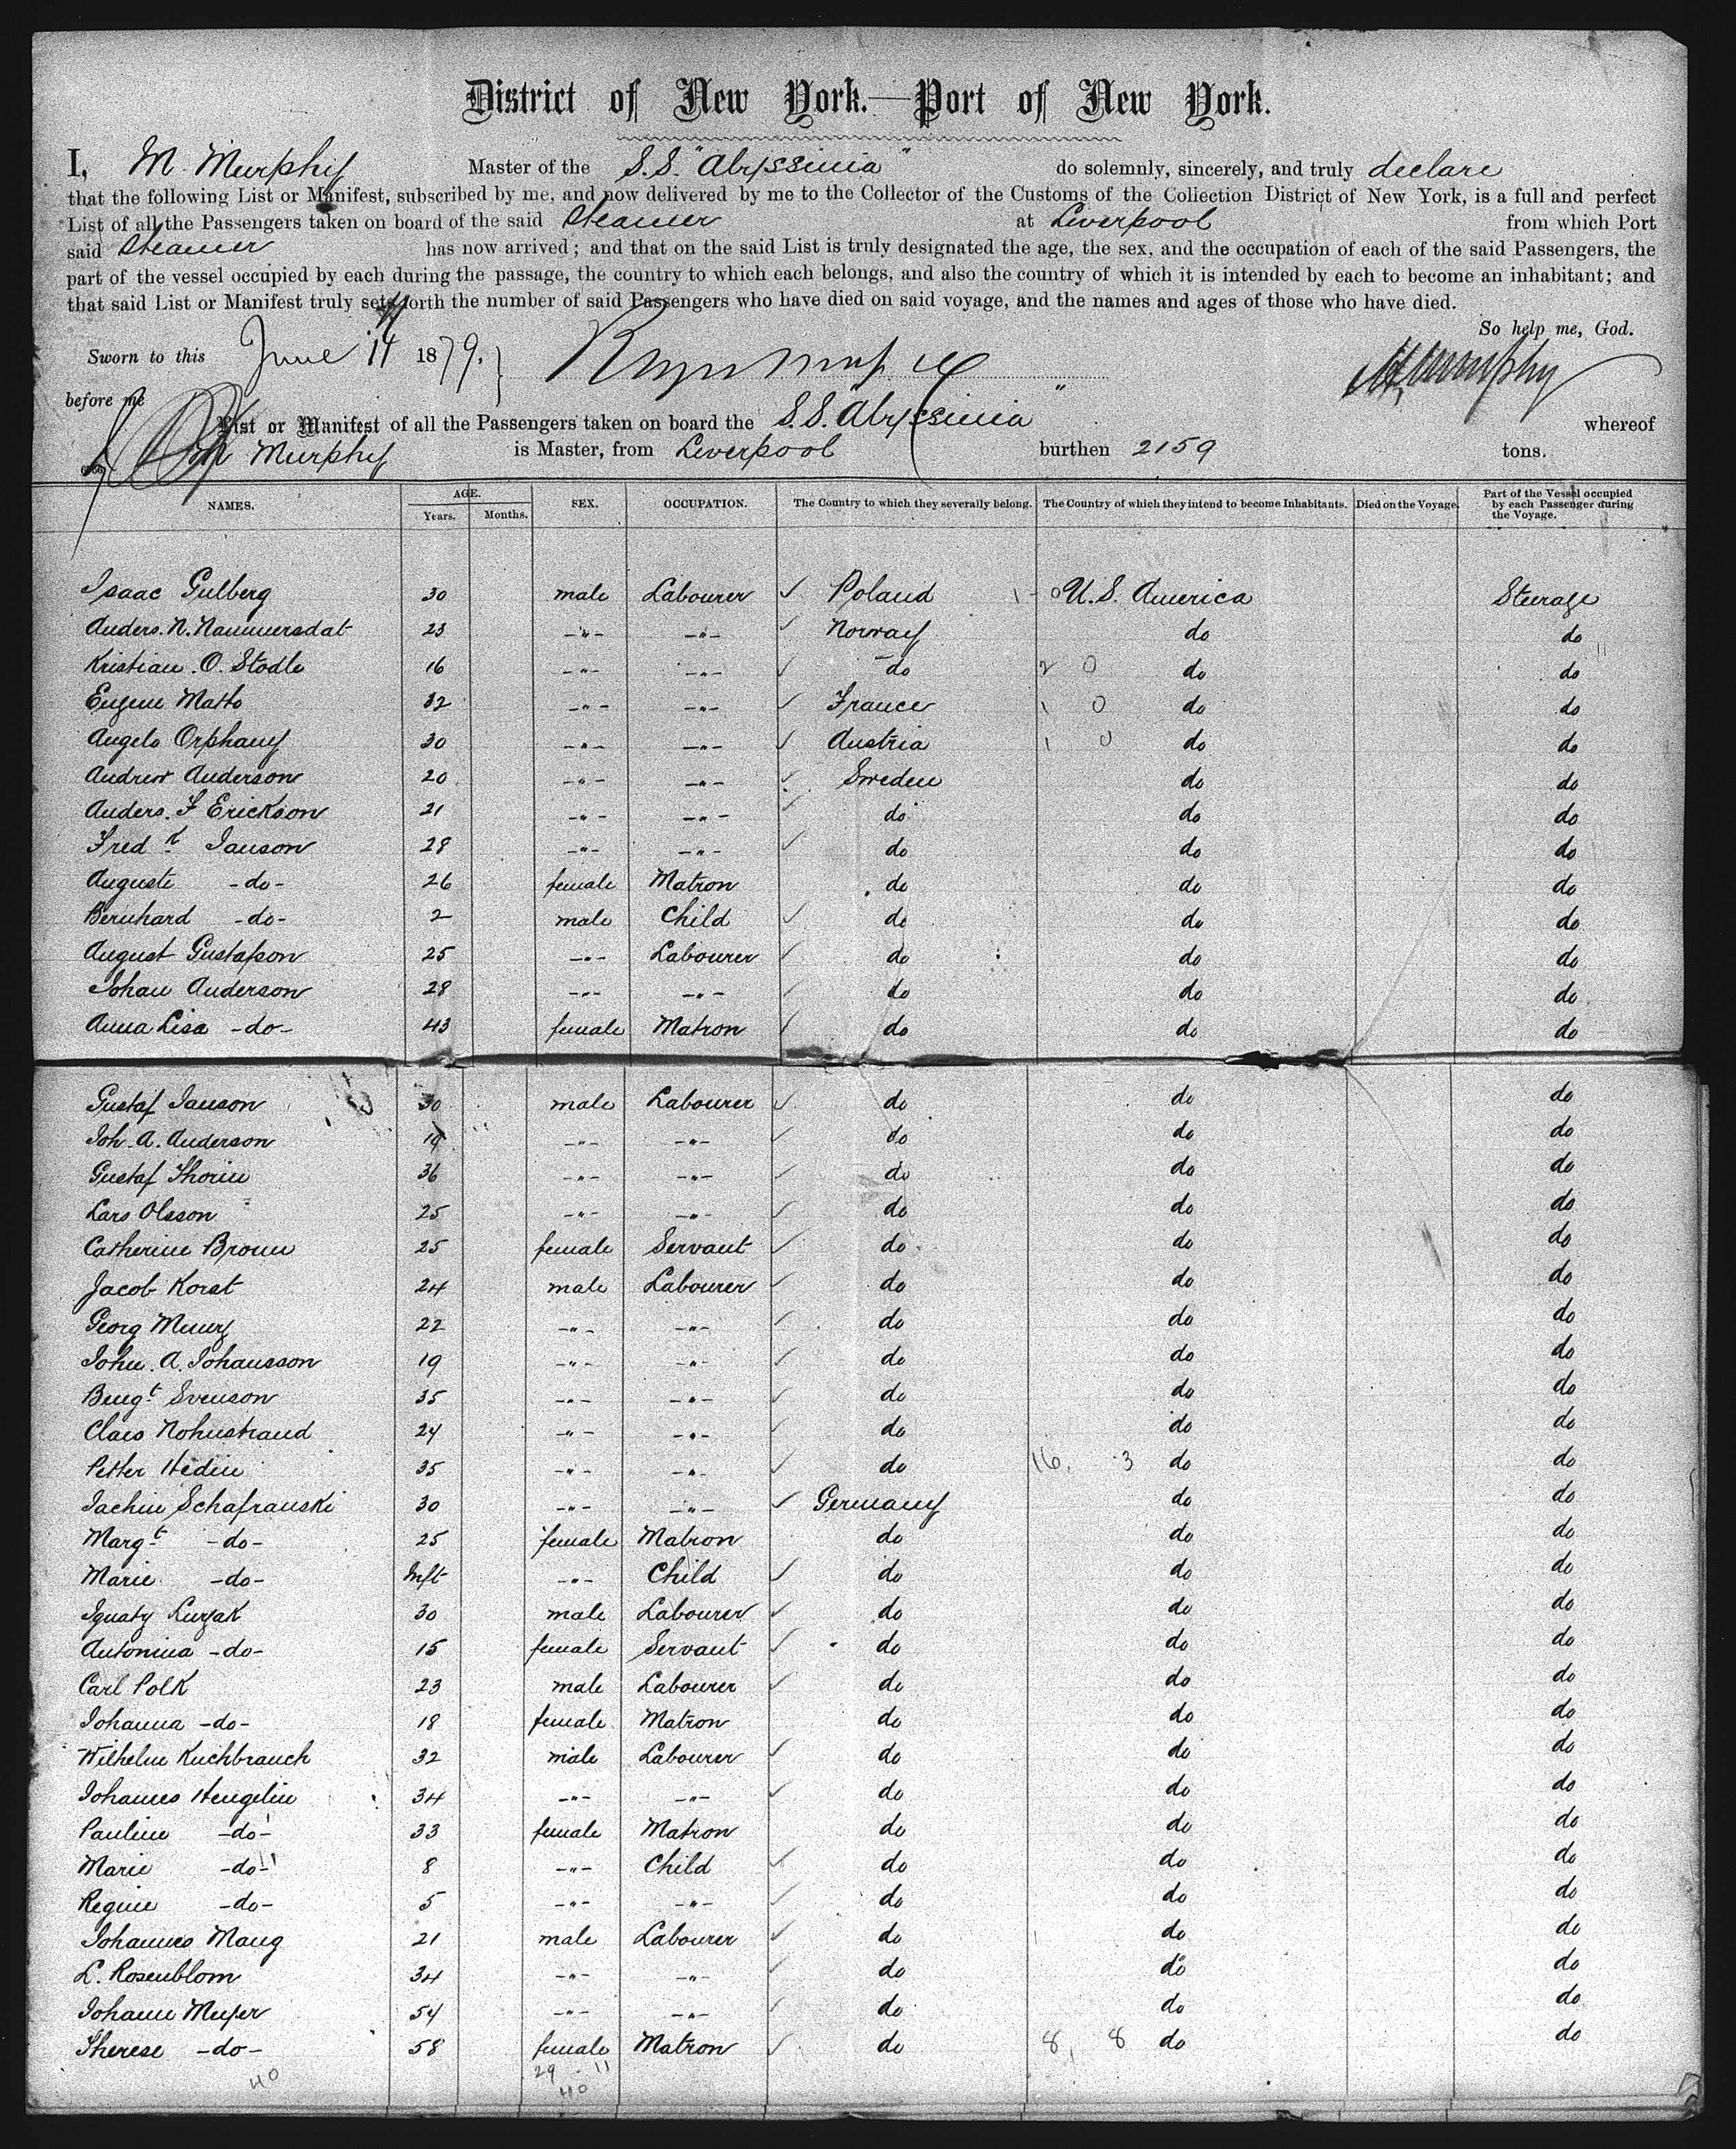 District of New York.—Port of New York.
I, M Murphy Master of the S.S. "Abyssinia" do solemnly, sincerely, and truly declare
that the following List or Manifest, subscribed by me, and now delivered by me to the Collector of the Customs of the Collection District of New York, is a full and perfect
List of all the Passengers taken on board of the said Steamer at Liverpool from which Port
said Steamer has now arrived; and that on the said List is truly designated the age, the sex, and the occupation of each of the said Passengers, the
part of the vessel occupied by each during the passage, the country to which each belongs, and also the country of which it is intended by each to become an inhabitant; and
that said List or Manifest truly sets forth the number of said Passengers who have died on said voyage, and the names and ages of those who have died.
So help me, God.
Sworn to this June 14 1879. M Murphy
before me
List or Manifest of all the Passengers taken on board the S.S. "Abyssinia" whereof
M Murphy is Master, from Liverpool burthen 2159 tons.
NAMES. AGE. Years. Months. SEX. OCCUPATION. The Country to which they severally belong. The Country of which they intend to become Inhabitants. Died on the Voyage. Part of the Vessel occupied by each Passenger during the Voyage.
Isaac Gulberg 30 male Labourer ✓ Poland 1 - 0 U.S. America Steerage
Anders. N. Nammersdat 23 -"- -"- ✓ Norway do do
Kristian. O. Stodle 16 -"- -"- ✓ do 2 0 do do
Eugene Matto 32 -"- -"- ✓ France 1 0 do do
Angelo Orphany 30 -"- -"- ✓ Austria 1 0 do do
Andrew Anderson 20 -"- -"- ✓ Sweden do do
Anders. F Erickson 21 -"- -"- ✓ do do do
Fred k Janson 28 -"- -"- ✓ do do do
Auguste -do- 26 female Matron do do do
Bernhard -do- 2 male Child ✓ do do do
August Gustafson 25 -"- Labourer ✓ do do do
Johan Anderson 28 -"- -"- ✓ do do do
Anna Lisa -do- 43 female Matron ✓ do do do
Gustaf Janson 30 male Labourer ✓ do do do
Joh. A. Anderson 19 -"- -"- ✓ do do do
Gustaf Thorin 36 -"- -"- ✓ do do do
Lars Olsson 25 -"- -"- ✓ do do do
Catherine Broun 25 female Servant ✓ do do do
Jacob Korst 24 male Labourer ✓ do do do
Georg 22 -"- -"- ✓ do do do
John. A. Johansson 19 -"- -"- ✓ do do do
Bengt Svenson 35 -"- -"- ✓ do do do
Claes Nohnstrand 24 -"- -"- ✓ do do do
Petter Hedin 35 -"- -"- ✓ do 16. 3 do do
Jachin Schafranski 30 -"- -"- ✓ Germany do do
Margt -do- 25 female Matron do do do
Marie -do- Inft -"- Child ✓ do do do
Ignaty Luzak 30 male Labourer ✓ do do do
Antonina -do- 15 female Servant ✓ do do do
Carl Polk 23 male Labourer ✓ do do do
Johanna -do- 18 female Matron do do do
Wilhelm Kuchbrauch 32 male Labourer ✓ do do do
Johannes Hengelin 34 -"- -"- ✓ do do do
Pauline -do- 33 female Matron do do do
Marie -do- 8 -"- Child ✓ do do do
Regine -do- 5 -"- -"- ✓ do do do
Johannes Maug 21 male Labourer ✓ do do do
L. Rosenblom 34 -"- -"- ✓ do do do
Johann Meyer 54 -"- -"- ✓ do do do
Therese -do- 58 female Matron ✓ do 8, 8 do do
40 29 - 11
40